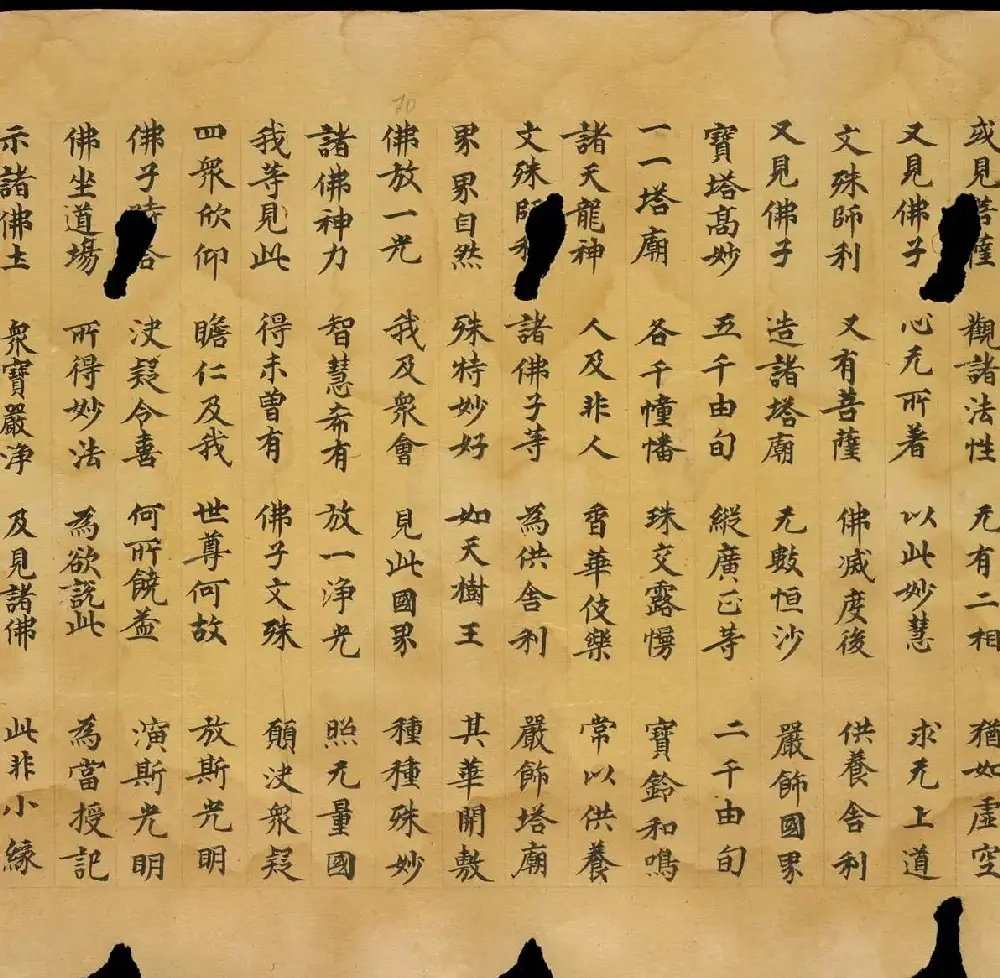 70
或見菩薩 觀諸法性 无有二相 猶如虛空
又見佛子 心无所著 以此妙慧 求无上道
文殊師利 又有菩薩 佛滅度後 供養舍利
又見佛子 造諸塔廟 无數恒沙 嚴飾國界
寶塔高妙 五千由旬 縱廣正等 二千由旬
一一塔廟 各千幢幡 珠交露幔 寶鈴和鳴
諸天龍神 人及非人 香華伎樂 常以供養
文殊師利 諸佛子等 為供舍利 嚴飾塔廟
界界自然 殊特妙好 如天樹王 其華開敷
佛放一光 我及眾會 見此國界 種種殊妙
諸佛神力 智慧希有 放一淨光 照无量國
我等見此 得未曾有 佛子文殊 願決眾疑
四眾欣仰 瞻仁及我 世尊何故 放斯光明
佛子時答 決疑令喜 何所饒益 演斯光明
佛坐道場 所得妙法 為欲說此 為當授記
示諸佛土 眾寶嚴淨 及見諸佛 此非小緣